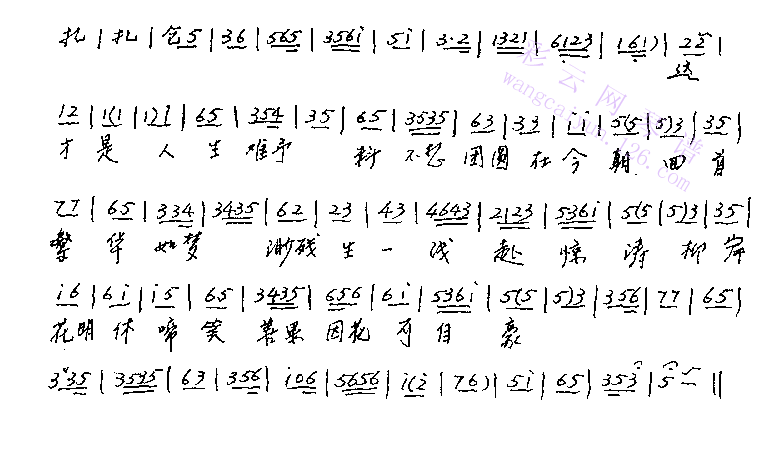 扎 | 扎 | 仓5 | 36 | 565 | 356i | 5i | 3·2 | 1321 | 6123 | 161) | 22 |
这
12 | 1(1 | 1)1 | 65 | 354 | 35 | 65 | 3535 | 63 | 33 | ii | 5(5 | 5)3 | 35 |
才是 人生难予 料 不想团圆在今朝 回首
77 | 65 | 334 | 3435 | 62 | 23 | 43 | 4643 | 2123 | 536i | 5(5 | 5)3 | 35 |
繁华如梦 渺残生一浅赴惊涛 柳岸
i6 | 6i | i5 | 65 | 3435 | 656 | 6i | 536i | 5(5 | 5)3 | 356 | 77 | 65 |
花明休啼笑 善果因花可自豪
335 | 3535 | 63 | 356 | i06 | 5656 | i(i | 76) | 5i | 65 | 353 | 5 -- ||
彩云网
wangcaiyun.126.com